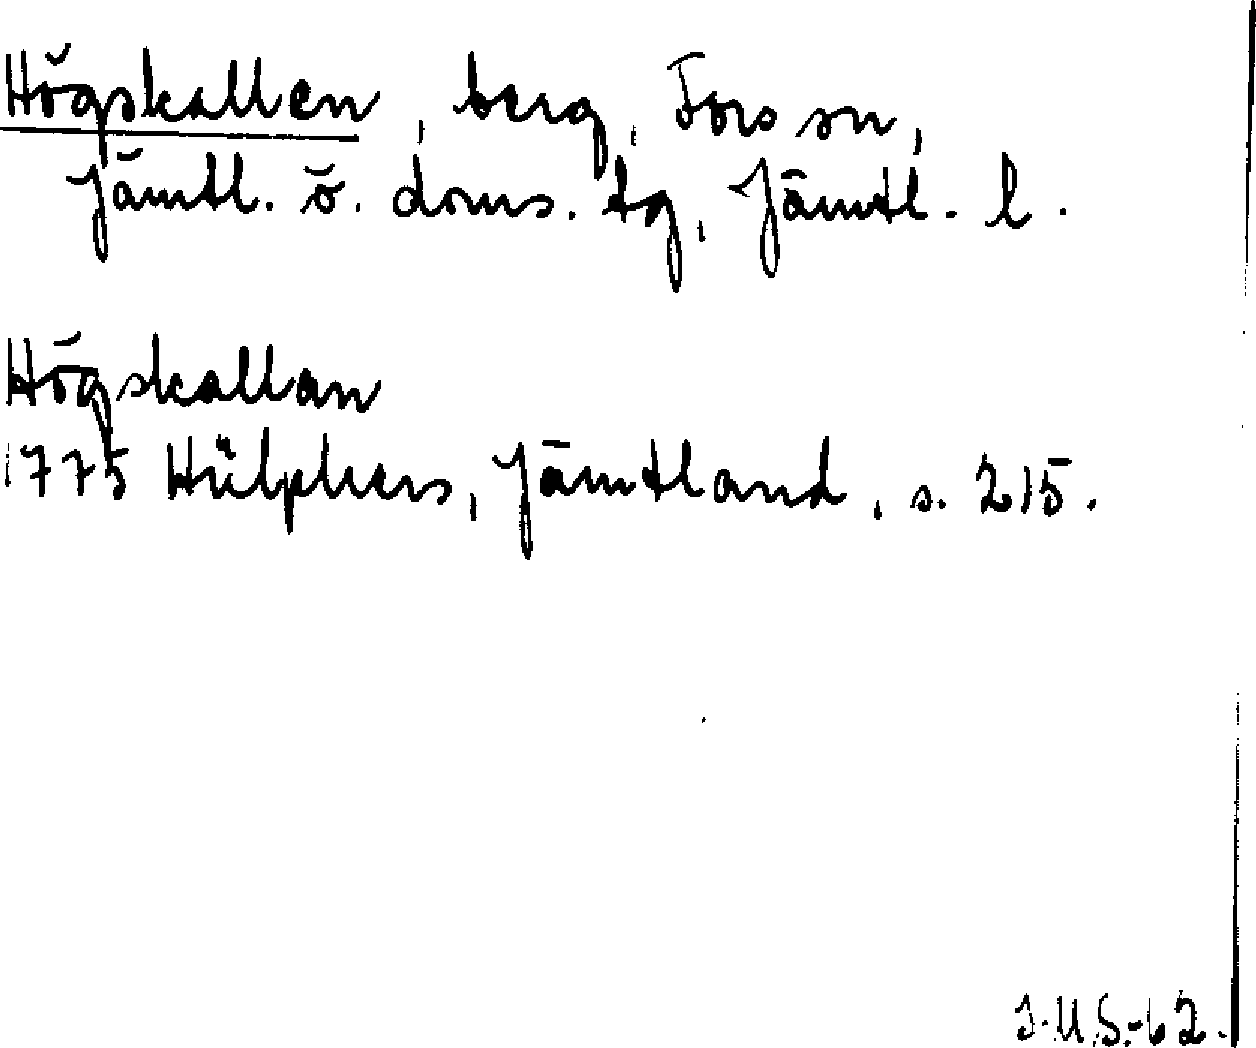 Högskallen, berg, Fors sn,
Jämtl. ö. doms. tg, Jämtl. l.
Högskallan
1775 Hülphers, Jämtland, s. 215.
I.M.S.-62.